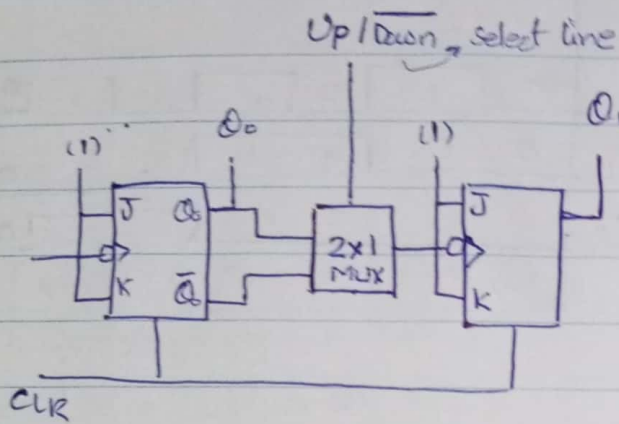 Up/D̅o̅w̅n̅, select line
(1) Q₀ (1) Q
J Q₀ J
2x1
MUX
K Q̅₀ K
CLR